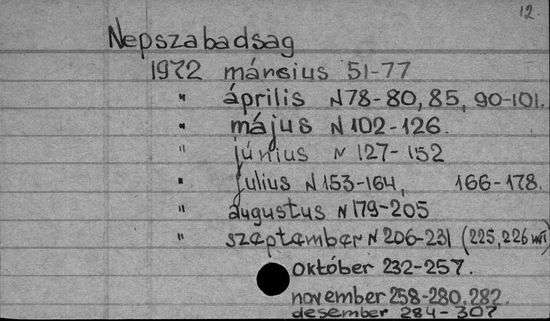 12.
Nepszabadsag
1972 március 51-77
" április N78-80, 85, 90-101.
" május N102-126.
" június N 127-152
" julius N153-164, 166-178.
" augustus N179-205
" szeptamber N206-231 (225, 226
október 232-257.
november 258-280, 282.
desember 284-307